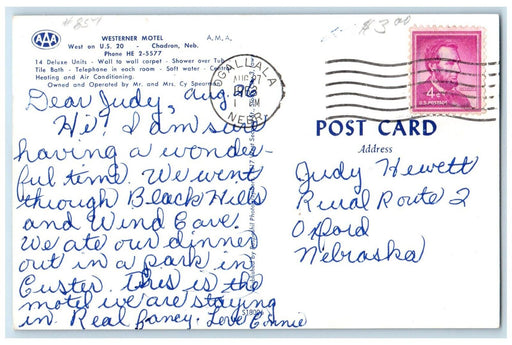 #857
$3.00
AAA
WESTERNER MOTEL A.M.A.
West on U.S. 20 - Chadron, Neb.
Phone HE 2-5577
14 Deluxe Units - Wall to wall carpet - Shower over Tub
Tile Bath - Telephone in each room - Soft water - Central
Heating and Air Conditioning.
Owned and Operated by Mr. and Mrs. Cy Spearman
OGALLALA
AUG 27
NEBR
4¢
U.S. POSTAGE
Dear Judy, Aug. 26
Hi! I am sure
having a wonder-
ful time. We went
through Black Hills
and Wind Cave.
We ate our dinner
out in a park in
Custer. This is the
motel we are staying
in. Real fancy. Love Connie
POST CARD
Address
Judy Hewett
Rural Route 2
Oxford
Nebraska